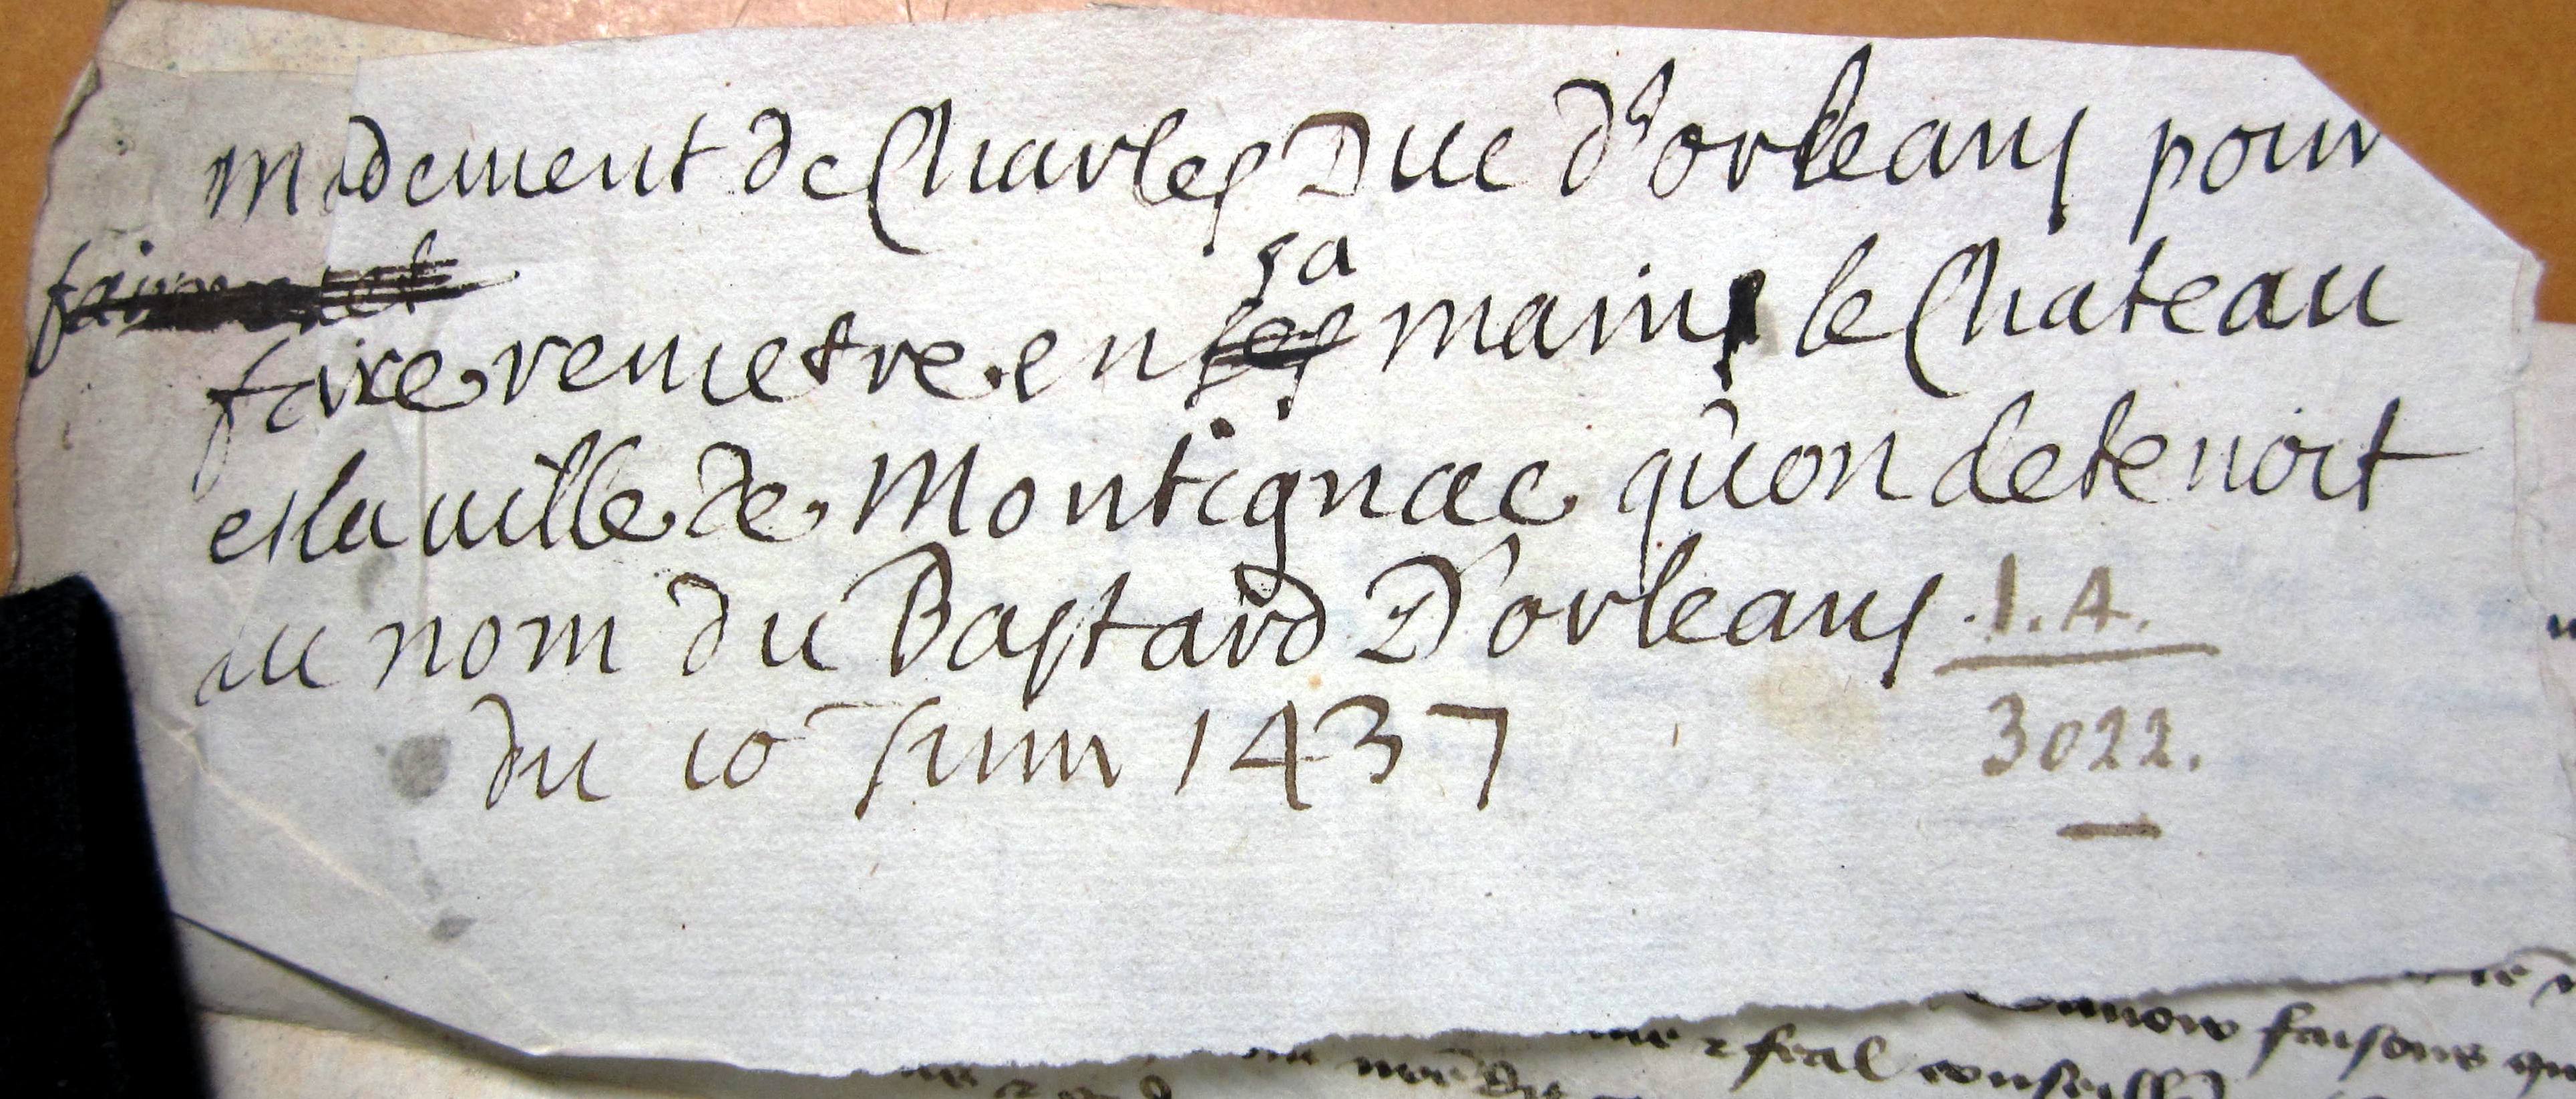 Madement de Charles Duc d'orleans pour
faire remetre en ses sa mains le Chateau
et la ville de Montignac qu'on detenoit
au nom du Bastard D'orleans
du 10 Juin 1437
1. A.
3022.
faisons
& feal conseill